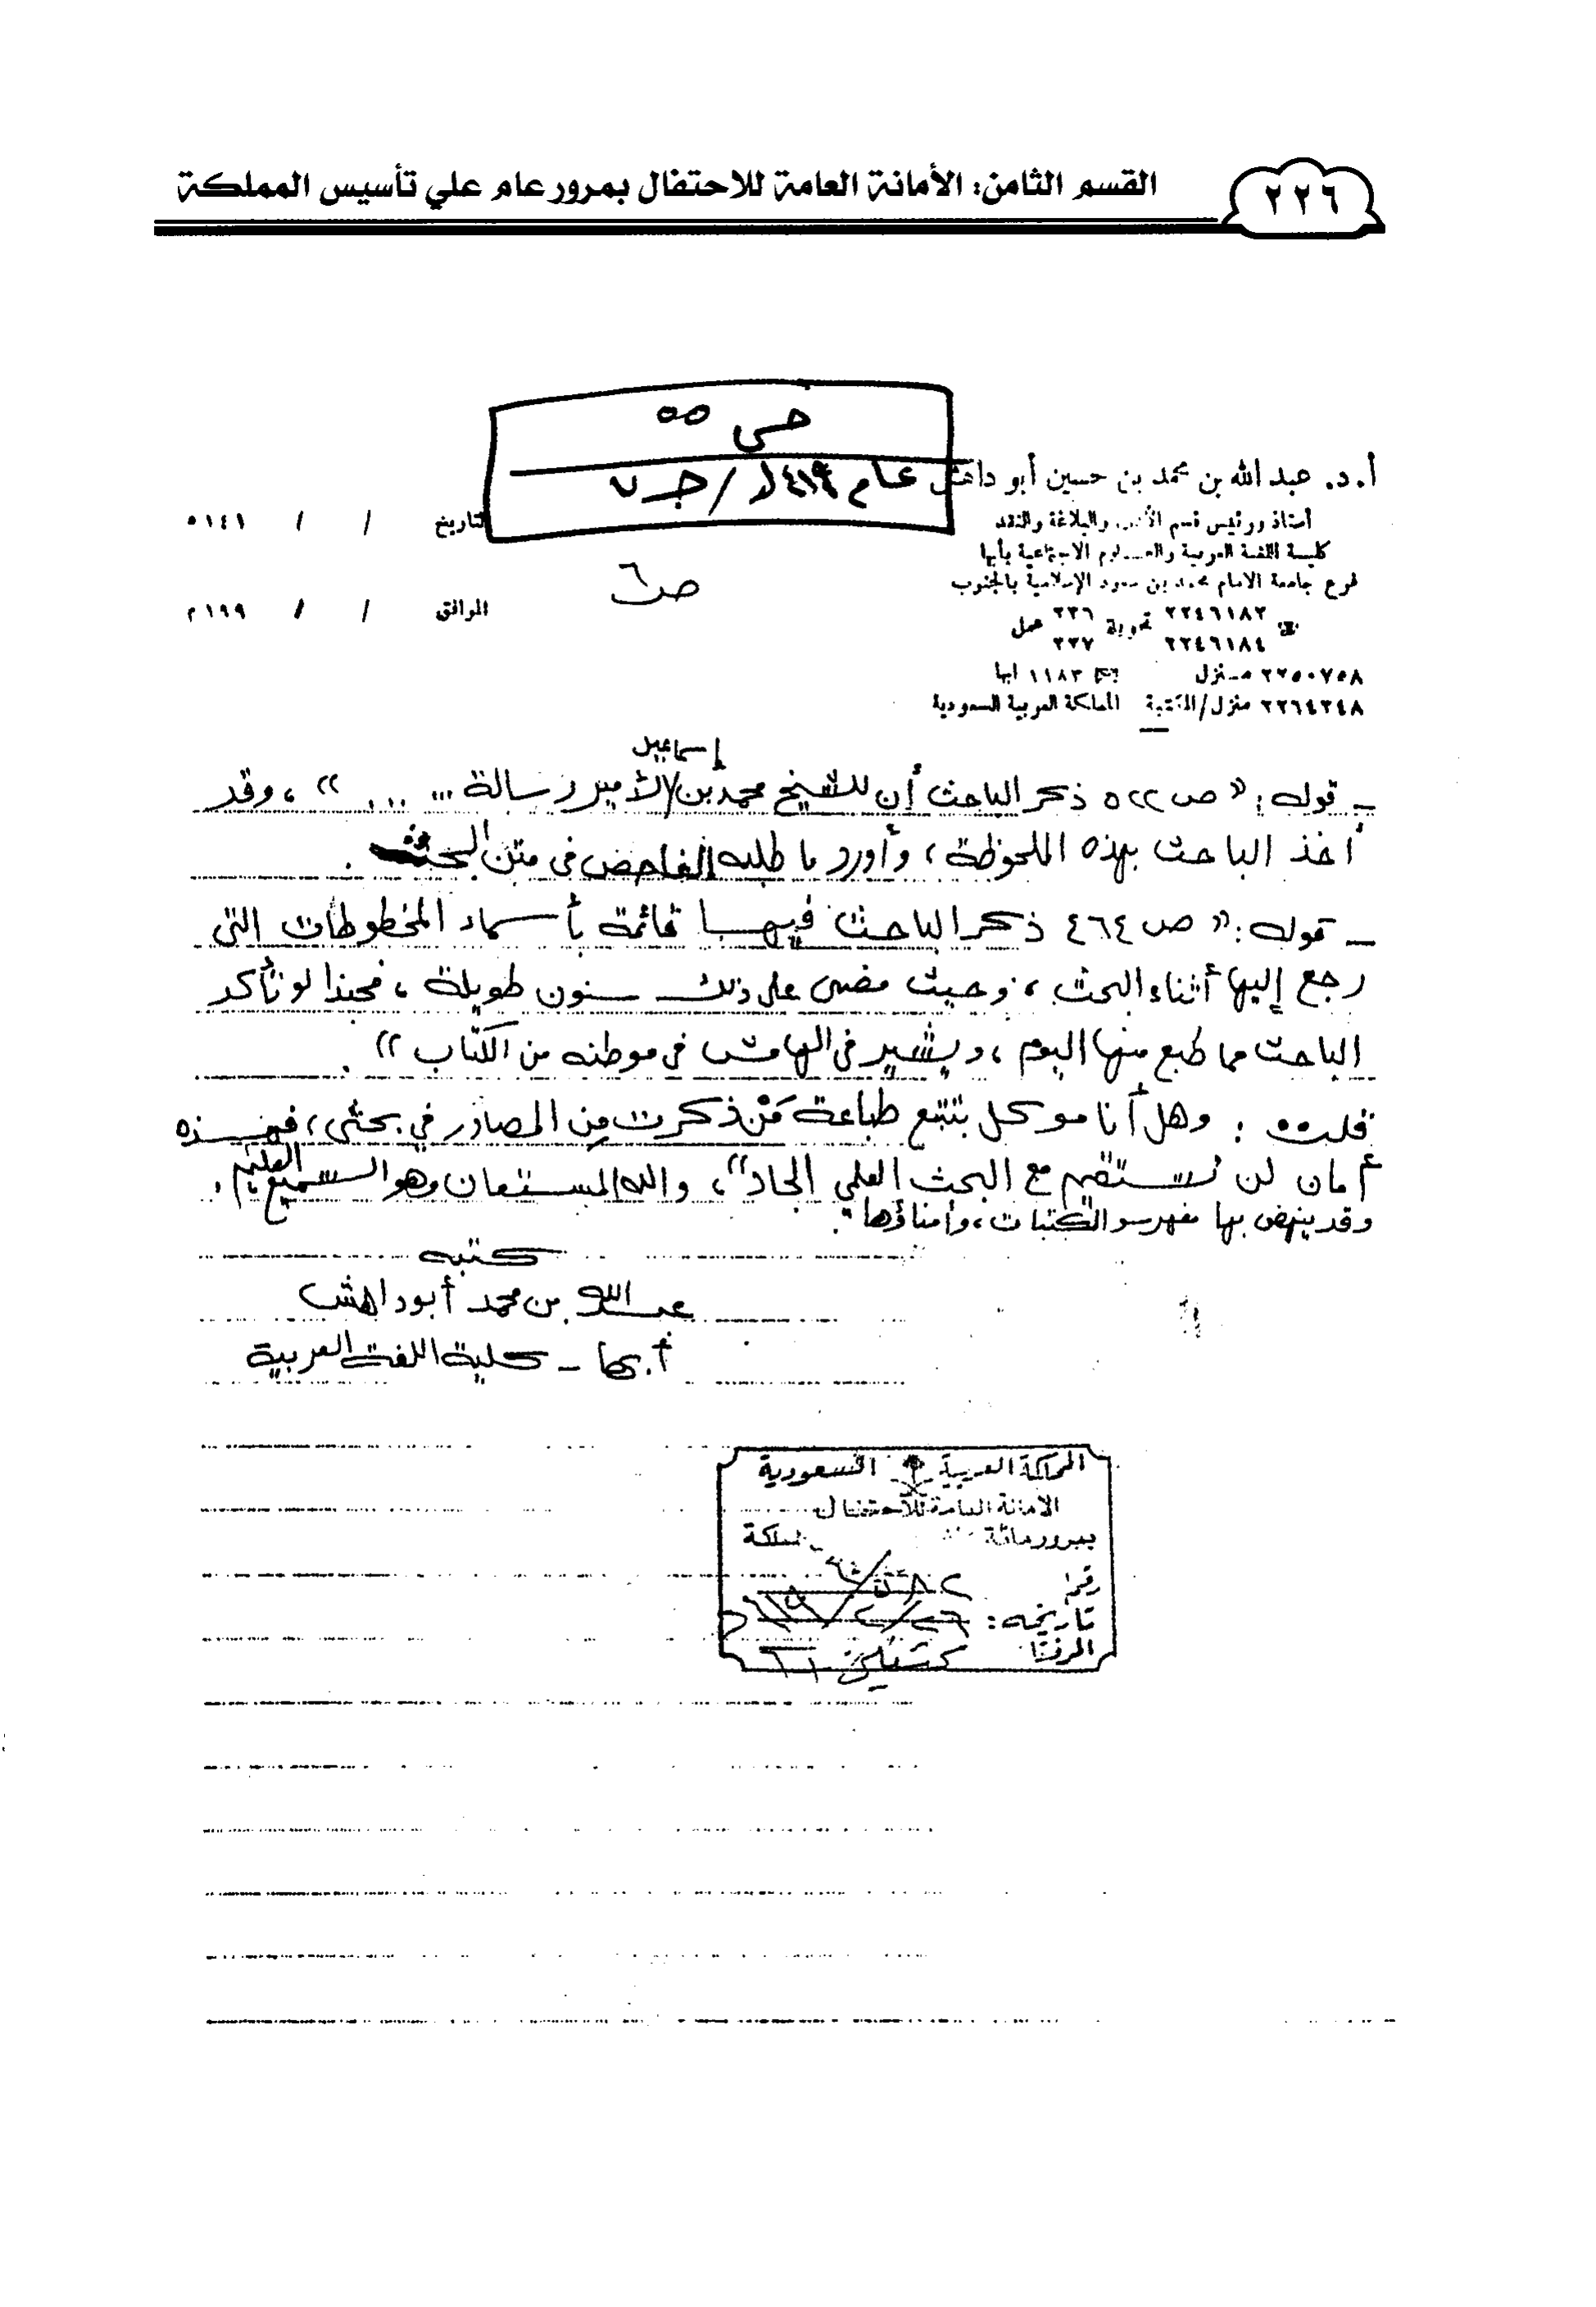 ٢٢٦
القسم الثامن: الأمانة العامة للاحتفال بمرور عام علي تأسيس المملكة
عام ١٤١٩هـ / جـ
أ.د. عبد الله بن محمد بن حسين أبو داهش
أستاذ ورئيس قسم الأدب والبلاغة والنقد
التاريخ / / ١٤١هـ
كلية اللغة العربية والعلوم الاجتماعية بأبها
فرع جامعة الامام محمد بن سعود الإسلامية بالجنوب
ص٦
الموافق / / ١٩٩م
٢٢٤٦١٨٢ تحويلة ٢٣٦ عمل
٢٢٤٦١٨٤ ٢٣٧
٢٢٥٠٧٥٨ منزل ١١٨٣ ابها
٢٢٦٤٣٤٨ منزل/المكتبة المملكة العربية السعودية
ـ قوله: « ص٥٢٢ ذكر الباحث أن للشيخ محمد بن إسماعيل الأمير رسالة ... ... »، وقد
أخذ الباحث بهذه الملحوظة، وأورد ما طلبه الفاحص في متن البحث.
ـ قوله: « ص٤٦٤ ذكر الباحث فيها قائمة بأسماء المخطوطات التي
رجع إليها أثناء البحث، وحيث مضى على ذلك سنون طويلة، فحبذا لو تأكد
الباحث مما طبع منها اليوم، ويشير في الهامش في موطنه من الكتاب ».
قلت: وهل أنا موكل بتتبع طباعة مَنْ ذكرت مِن المصادر في بحثي، فهذه
أمان لن تستقيم مع البحث العلمي الجاد"، والله المستعان وهو السميع العليم.
وقد ينهض بها مفهرسو المكتبات، وأمناؤها".
كتبه
عبدالله بن محمد أبوداهش
أبها ـ كلية اللغة العربية
المملكة العربية السعودية
الأمانة العامة للاحتفال
بمرور مائة المملكة
رقم
تاريخه: ٢٦/٢/١٤١٩هـ